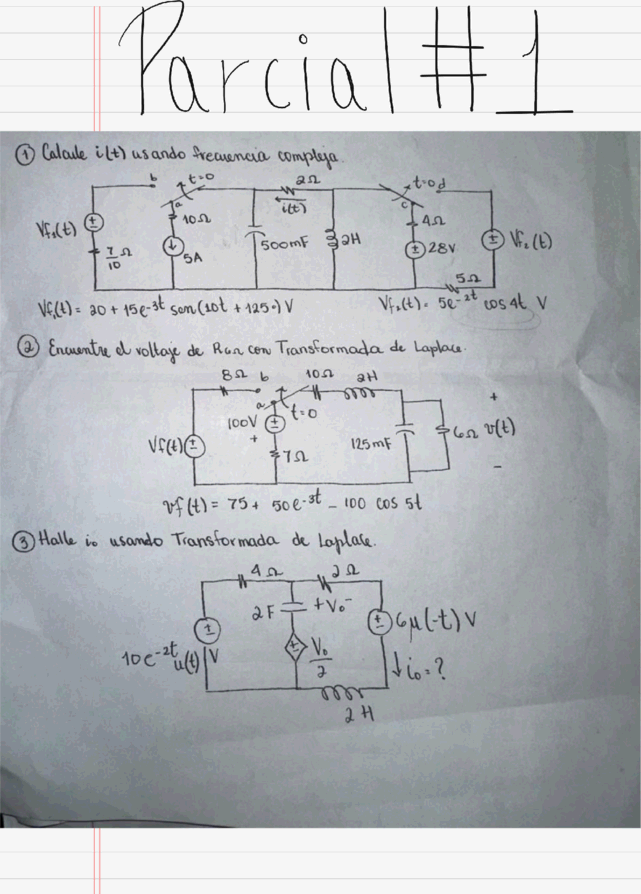 Parcial #1
① Calcule i(t) usando frecuencia compleja.
b t=0 2Ω t=0 d
a i(t) c
Vf₁(t) 10Ω 4Ω
7/10 Ω 5A 500mF 2H 28V Vf₂(t)
5Ω
Vf₁(t) = 20 + 15e^-3t sen(10t + 125°) V Vf₂(t) = 5e^-2t cos 4t V
② Encuentre el voltaje de R6Ω con Transformada de Laplace.
8Ω b 10Ω 2H
a t=0 +
100V
Vf(t) + 125mF 6Ω v(t)
7Ω
-
vf(t) = 75 + 50e^-3t - 100 cos 5t
③ Halle i₀ usando Transformada de Laplace.
4Ω 2Ω
2F +V₀-
6μ(-t) V
10e^-2t u(t) V V₀/2 ↓ i₀ = ?
2H